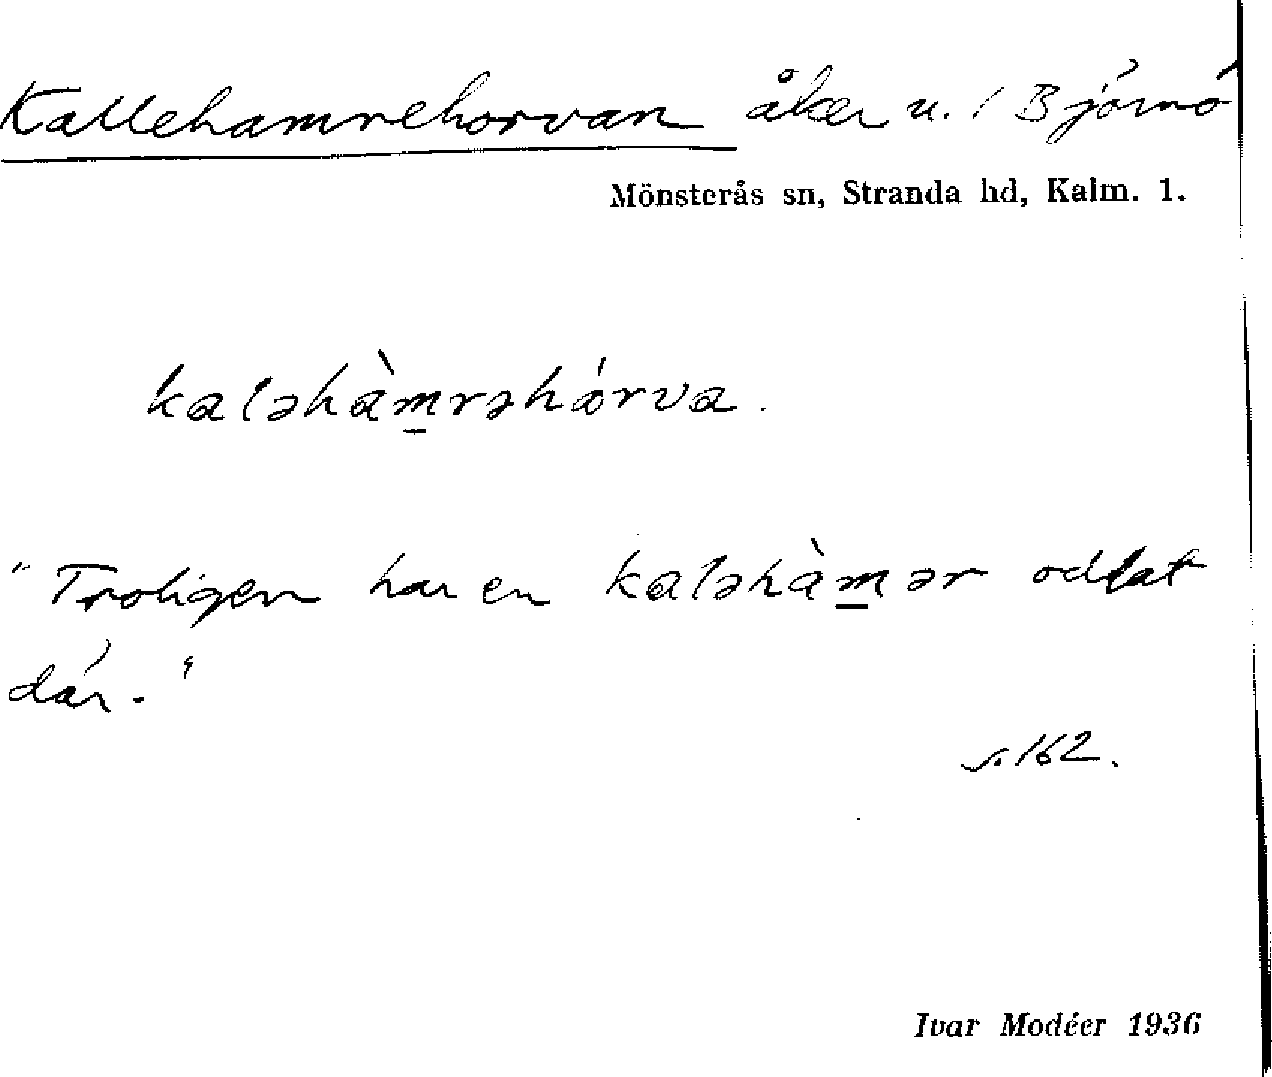 Kallehamrehorvan åker u. / Björnö
Mönsterås sn, Stranda hd, Kalm. l.
kaləhàm̲rəhórva.
"Troligen har en kaləhàm̲ər odlat
där."
s. 162.
Ivar Modéer 1936